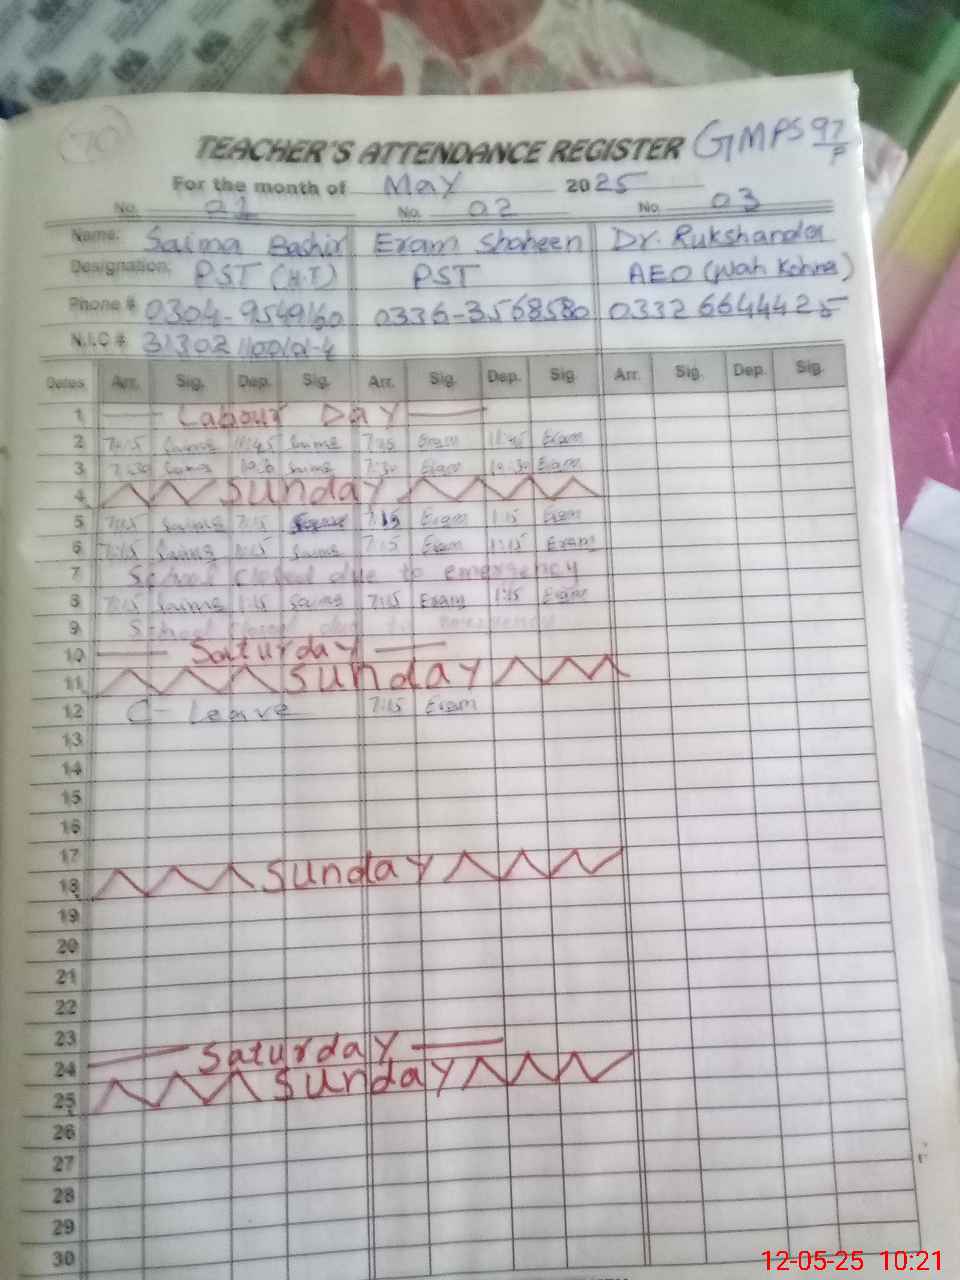 70
TEACHER'S ATTENDANCE REGISTER GMPS 97/P
For the month of May 2025
No. 01 No. 02 No. 03
Name: Saima Bashir Eram Shaheen Dr. Rukshanda
Designation: PST (H.T) PST AEO (Wah Kohna)
Phone # 0304-9549160 0336-3568580 0332 6644425
N.I.C # 31302
Dates Arr. Sig. Dep. Sig. Arr. Sig. Dep. Sig. Arr. Sig. Dep. Sig.
1 Labour Day
2 7:15 Saima 11:45 Saima 7:15 Eram 11:45 Eram
3 7:30 Saima Saima 7:30 Eram 10:30 Eram
4 Sunday
5 7:15 Saima 7:15 Eram 1:15 Eram
6 7:15 Saima 1:15 Saima 7:15 Eram 1:15 Eram
7 School closed due to emergency
8 7:15 Saima 1:15 Saima 7:15 Eram 1:15 Eram
9 School closed due to emergency
10 Saturday
11 Sunday
12 C-Leave 7:15 Eram
13
14
15
16
17
18 Sunday
19
20
21
22
23
24 Saturday
25 Sunday
26
27
28
29
30
12-05-25 10:21